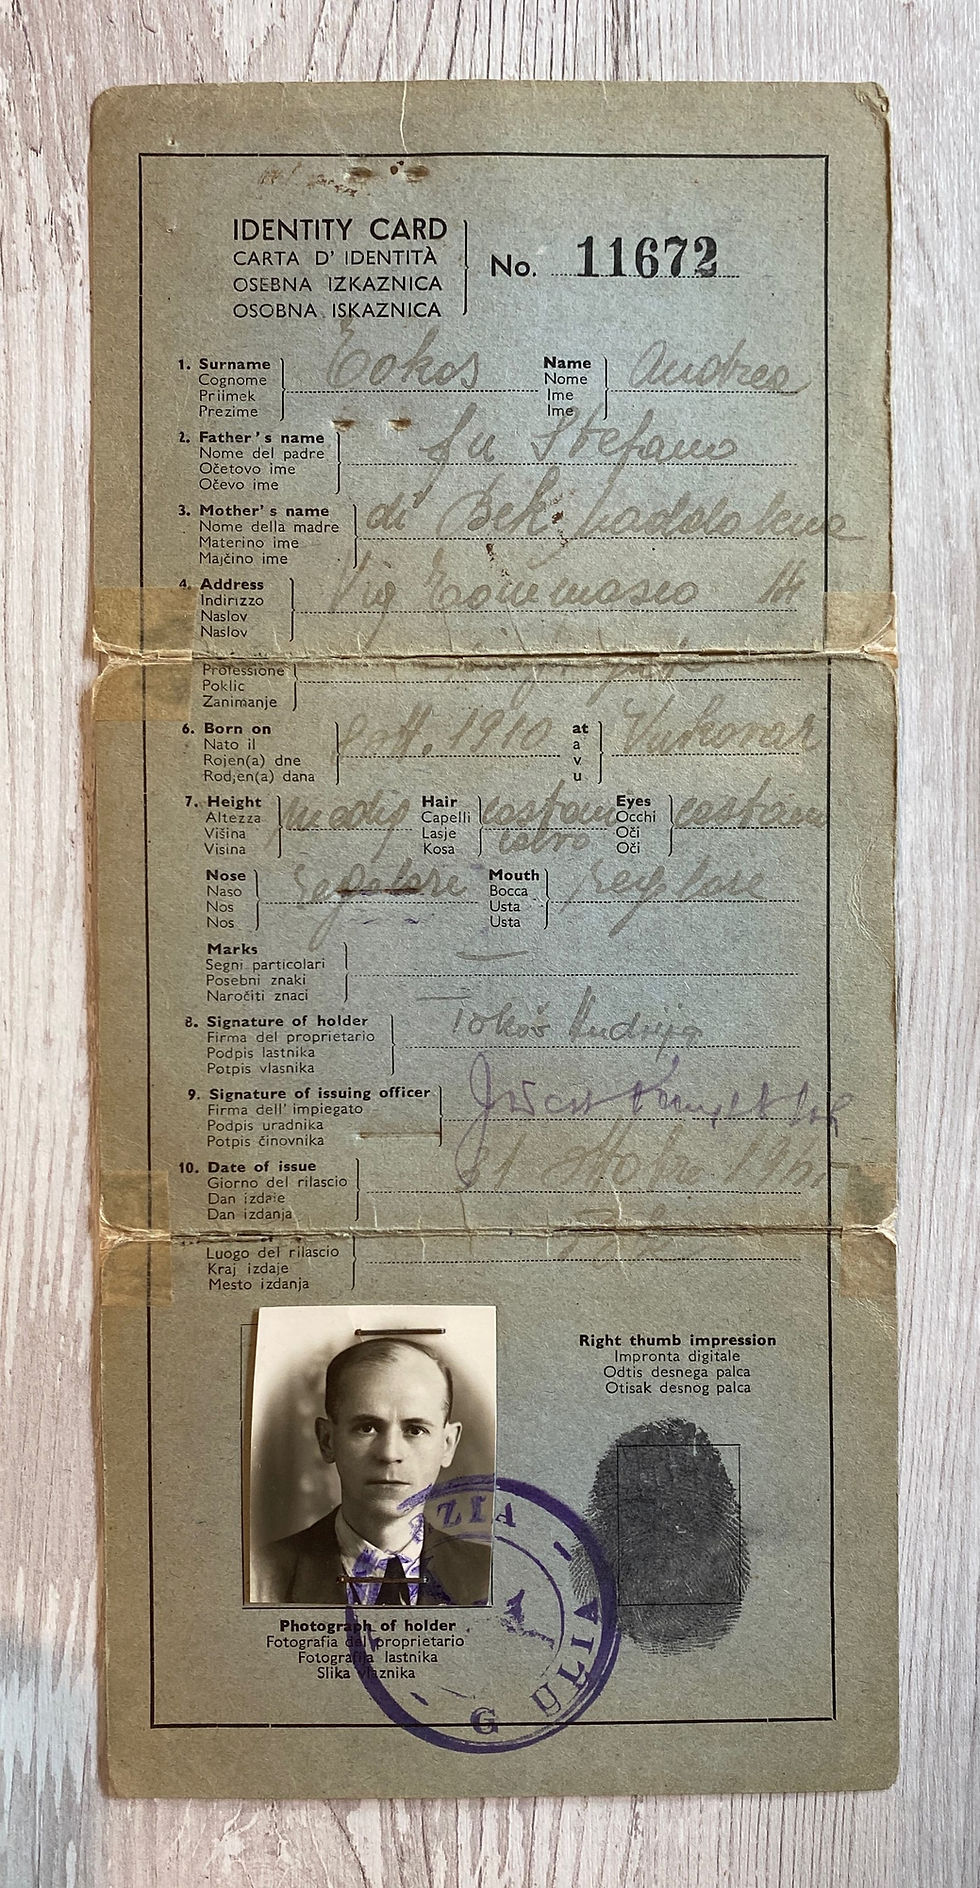 IDENTITY CARD
CARTA D' IDENTITÀ
OSEBNA IZKAZNICA
OSOBNA ISKAZNICA
No. 11672
1. Surname
Cognome
Priimek
Prezime
Tokos
Name
Nome
Ime
Ime
Andrea
2. Father's name
Nome del padre
Očetovo ime
Očevo ime
fu Stefano
3. Mother's name
Nome della madre
Materino ime
Majčino ime
di Bek
4. Address
Indirizzo
Naslov
Naslov
Via Tommaseo
Professione
Poklic
Zanimanje
6. Born on
Nato il
Rojen(a) dne
Rodjen(a) dana
1910
at
a
v
u
Vukovar
7. Height
Altezza
Višina
Visina
media
Hair
Capelli
Lasje
Kosa
castano
Eyes
Occhi
Oči
Oči
castano
Nose
Naso
Nos
Nos
Regolare
Mouth
Bocca
Usta
Usta
Reg lare
Marks
Segni particolari
Posebni znaki
Naročiti znaci
8. Signature of holder
Firma del proprietario
Podpis lastnika
Potpis vlasnika
Tokoš Andrija
9. Signature of issuing officer
Firma dell' impiegato
Podpis uradnika
Potpis činovnika
10. Date of issue
Giorno del rilascio
Dan izdaje
Dan izdanja
Luogo del rilascio
Kraj izdaje
Mesto izdanja
Right thumb impression
Impronta digitale
Odtis desnega palca
Otisak desnog palca
ZIA
G ULIA
Photograph of holder
Fotografia del proprietario
Fotografija lastnika
Slika vlaznika